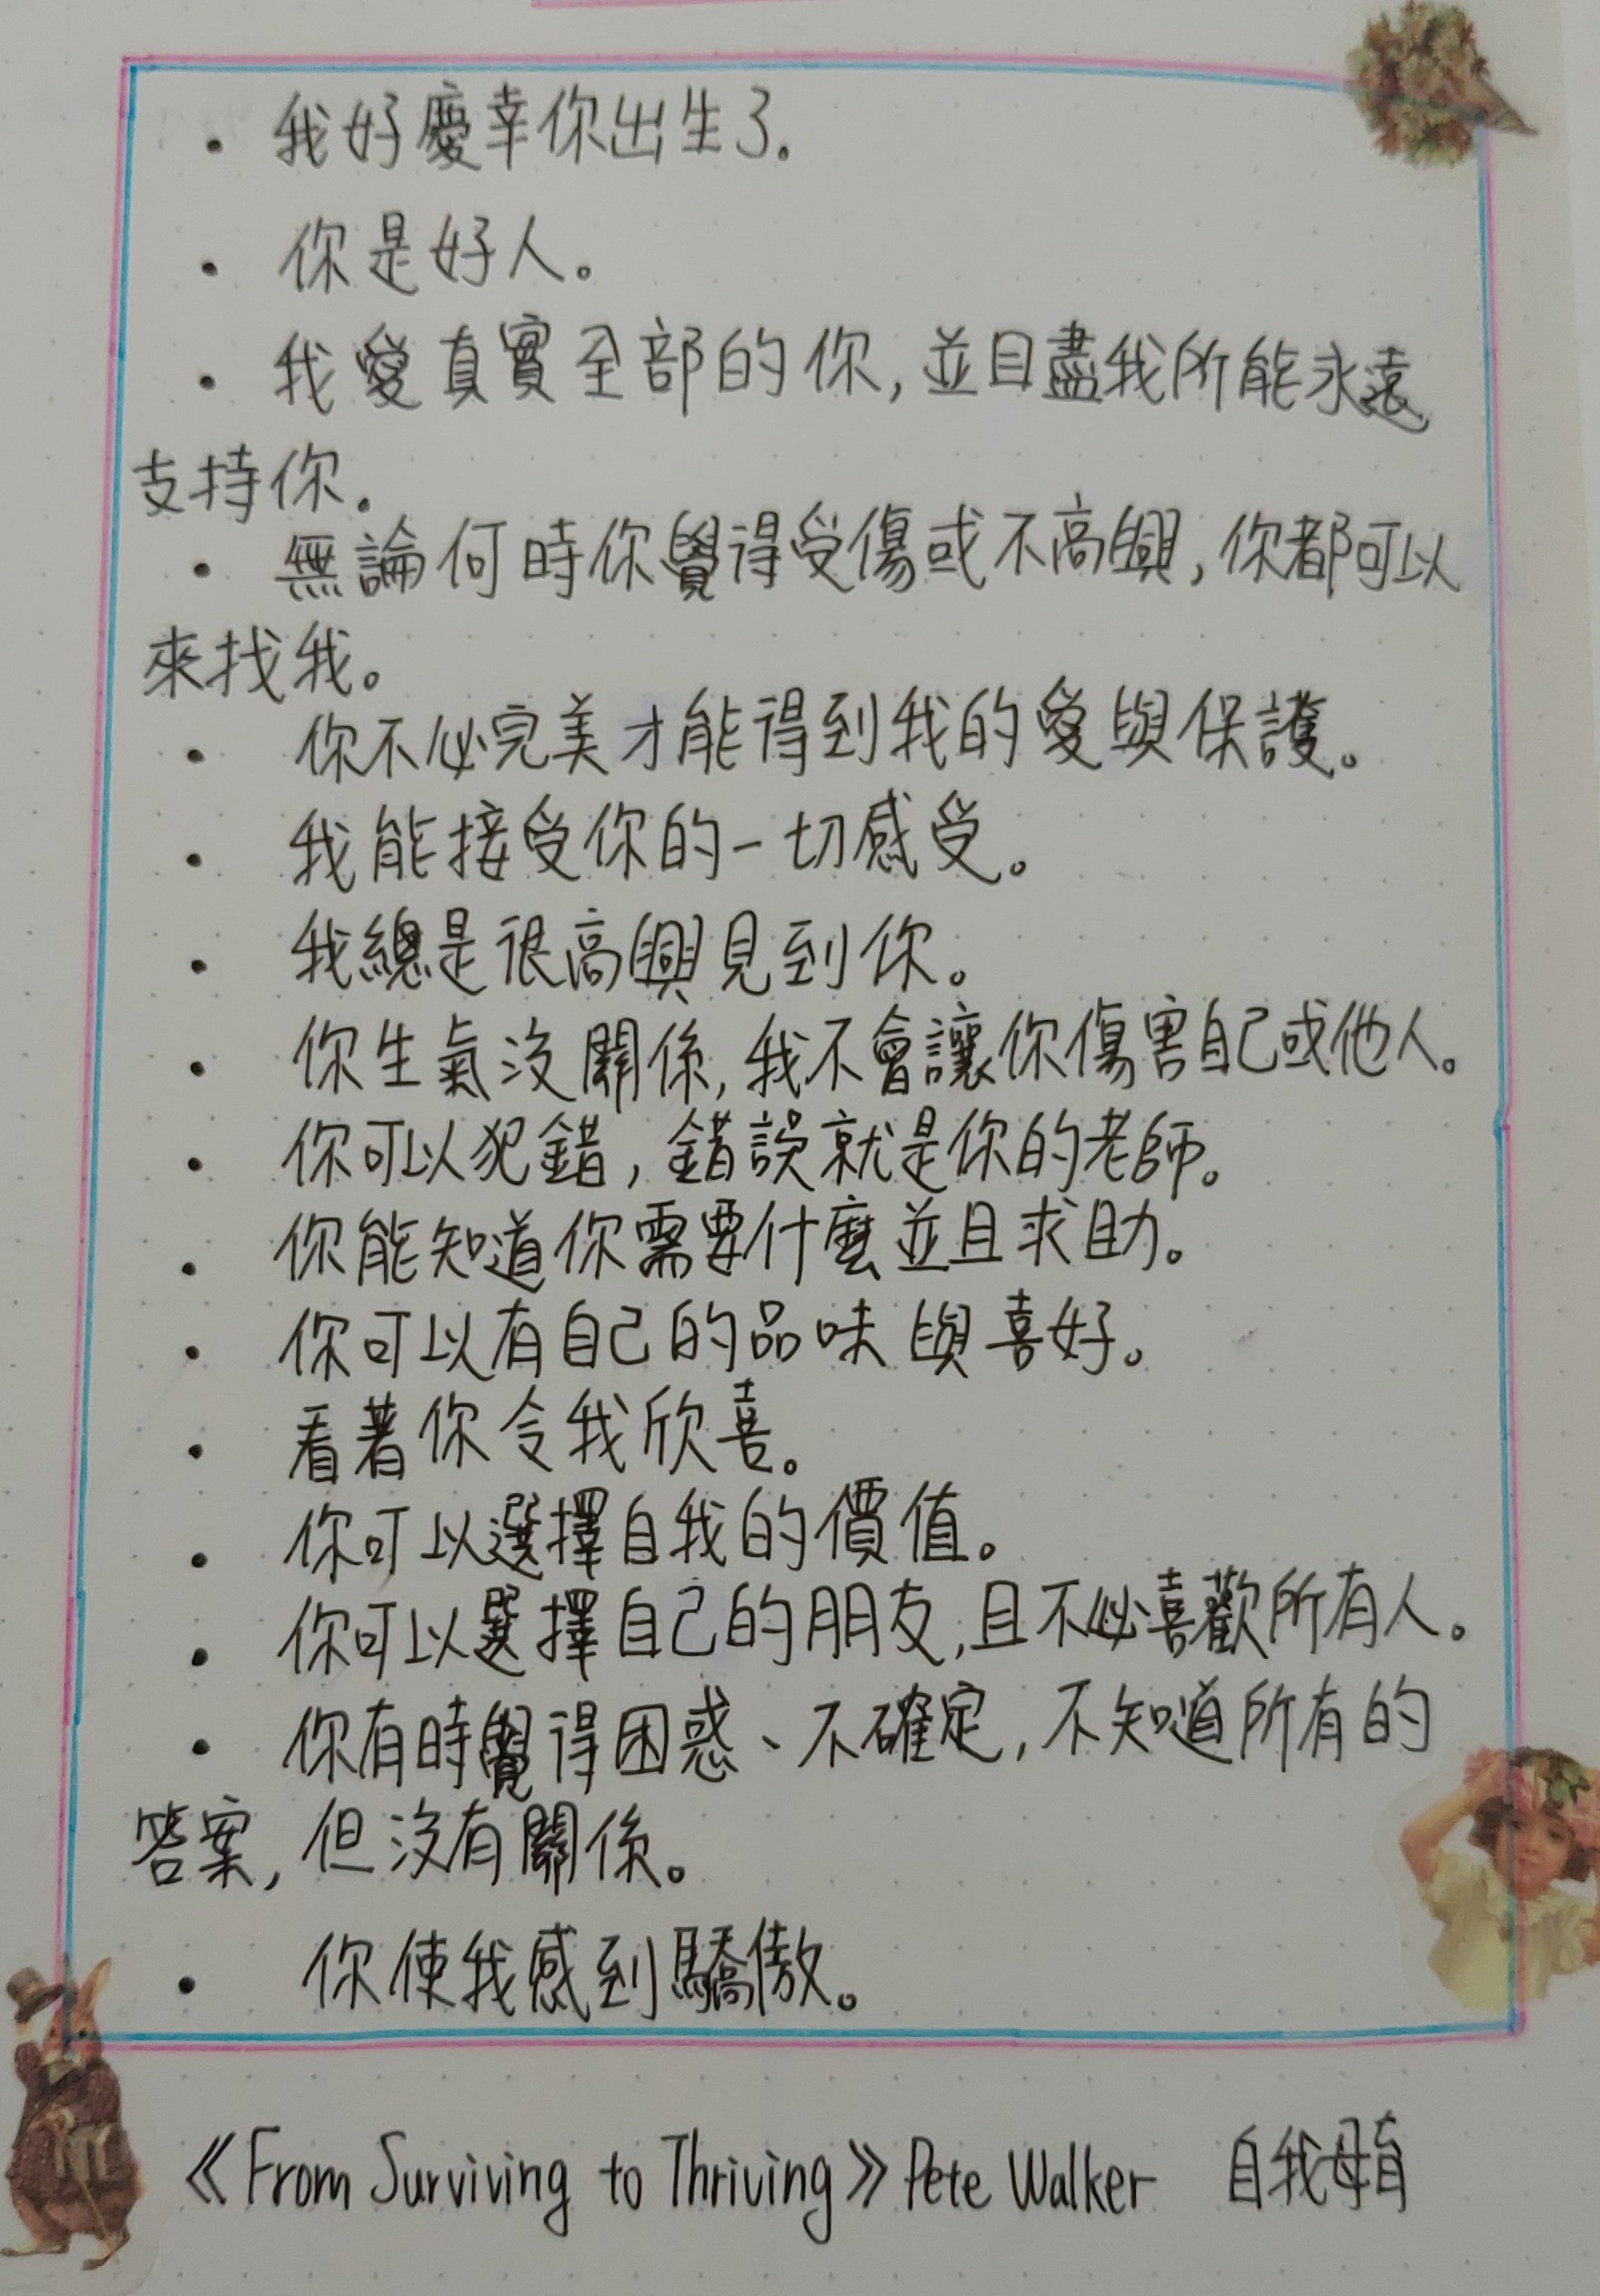 · 我好慶幸你出生了.
· 你是好人。
· 我愛真實全部的你, 並且盡我所能永遠
支持你.
· 無論何時你覺得受傷或不高興, 你都可以
來找我。
· 你不必完美才能得到我的愛與保護。
· 我能接受你的一切感受。
· 我總是很高興見到你。
· 你生氣沒關係, 我不會讓你傷害自己或他人。
· 你可以犯錯, 錯誤就是你的老師。
· 你能知道你需要什麼並且求助。
· 你可以有自己的品味與喜好。
· 看著你令我欣喜。
· 你可以選擇自我的價值。
· 你可以選擇自己的朋友, 且不必喜歡所有人。
· 你有時覺得困惑、不確定, 不知道所有的
答案, 但沒有關係。
· 你使我感到驕傲。
《From Surviving to Thriving》 Pete Walker 自我母育